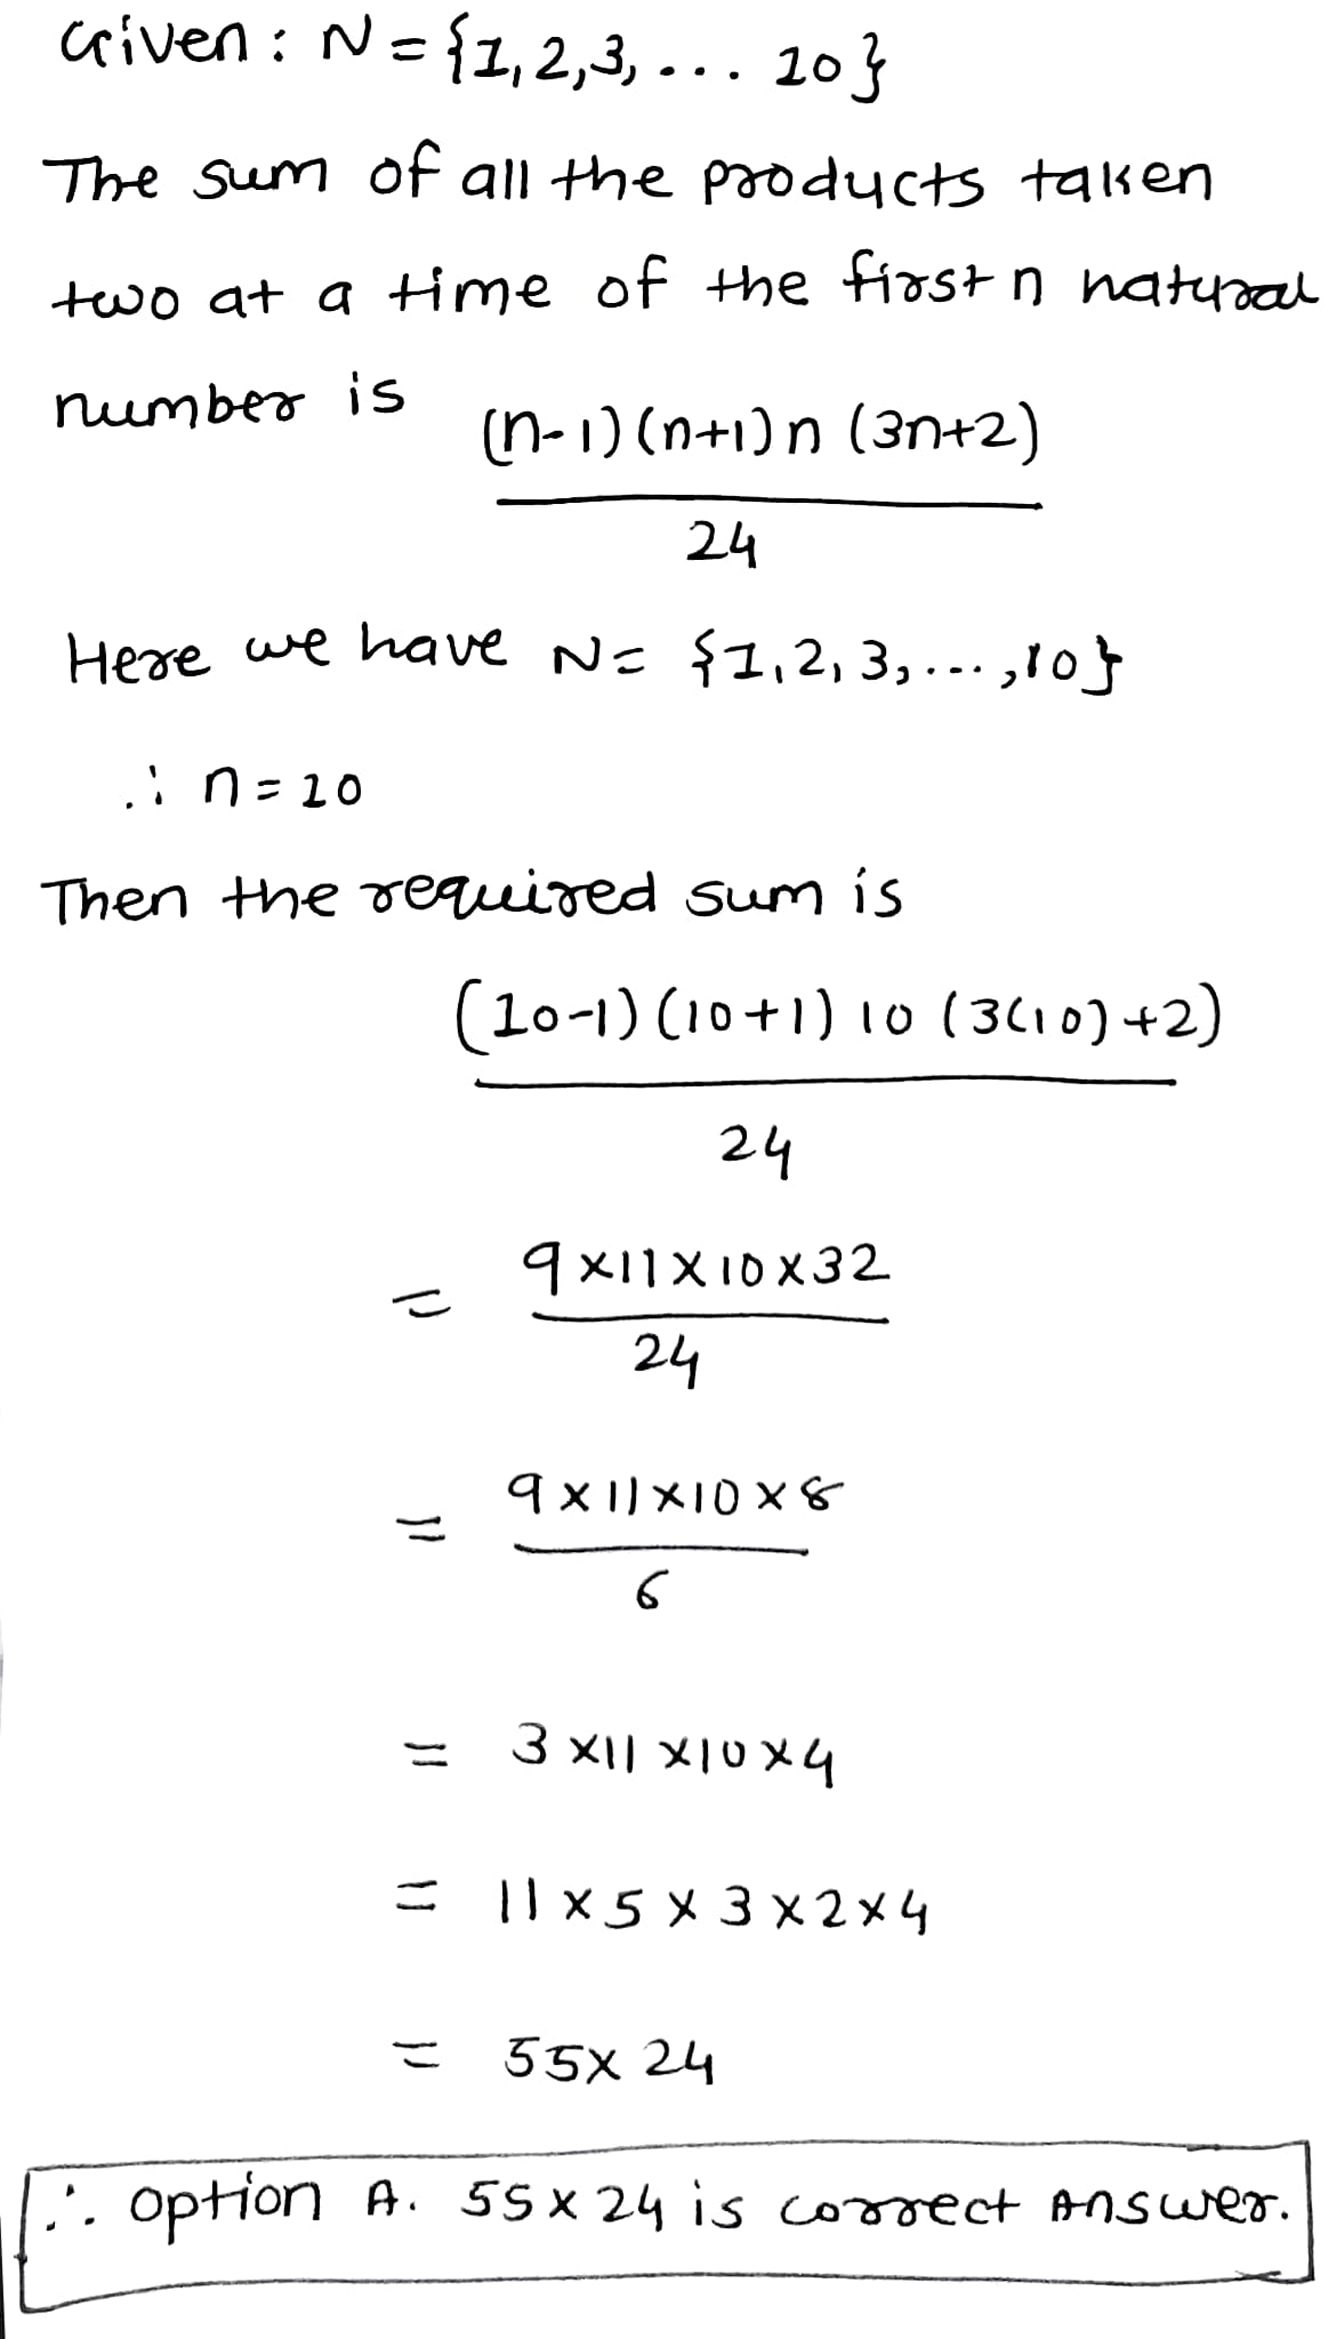 Given : N = {1, 2, 3, ... 10}
The sum of all the products taken
two at a time of the first n natural
number is (n-1)(n+1)n (3n+2)
24
Here we have N = {1, 2, 3, ..., 10}
∴ n = 10
Then the required sum is
(10-1)(10+1) 10 (3(10)+2)
24
= 9×11×10×32
24
= 9×11×10×8
6
= 3×11×10×4
= 11×5×3×2×4
= 55×24
∴ option A. 55×24 is correct Answer.